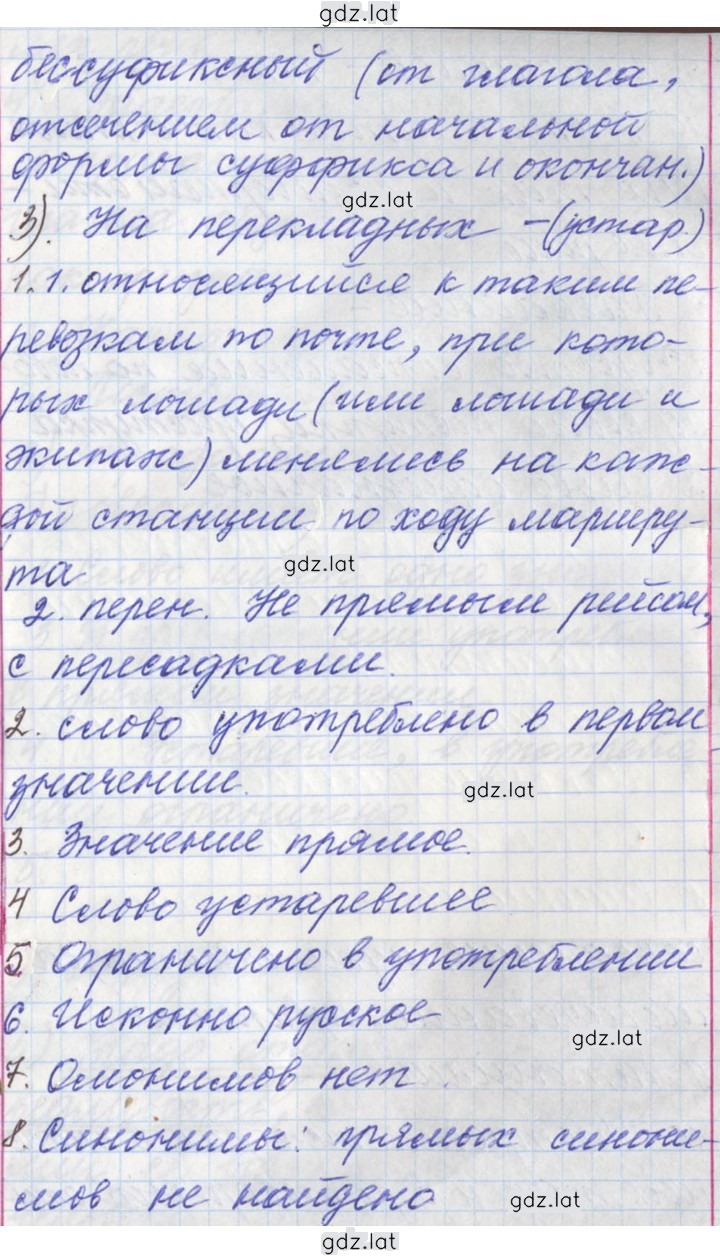 gdz.lat
бессуфиксный (от глагола,
отсечением от начальной
формы суффикса и окончан.)
gdz.lat
3). На перекладных -(устар.)
1.1. относящийся к таким пе-
ревозкам по почте, при кото-
рых лошади (или лошади и
экипаж) менялись на каж-
дой станции по ходу маршру-
gdz.lat
та
2. перен. Не прямым рейсом,
с пересадками.
2. слово употреблено в первом
значении.
gdz.lat
3. Значение прямое.
4 Слово устаревшее
5. Ограничено в употреблении
6. Исконно русское
gdz.lat
7. Омонимов нет.
8. Синонимы: прямых синони-
мов не найдено
gdz.lat
gdz.lat